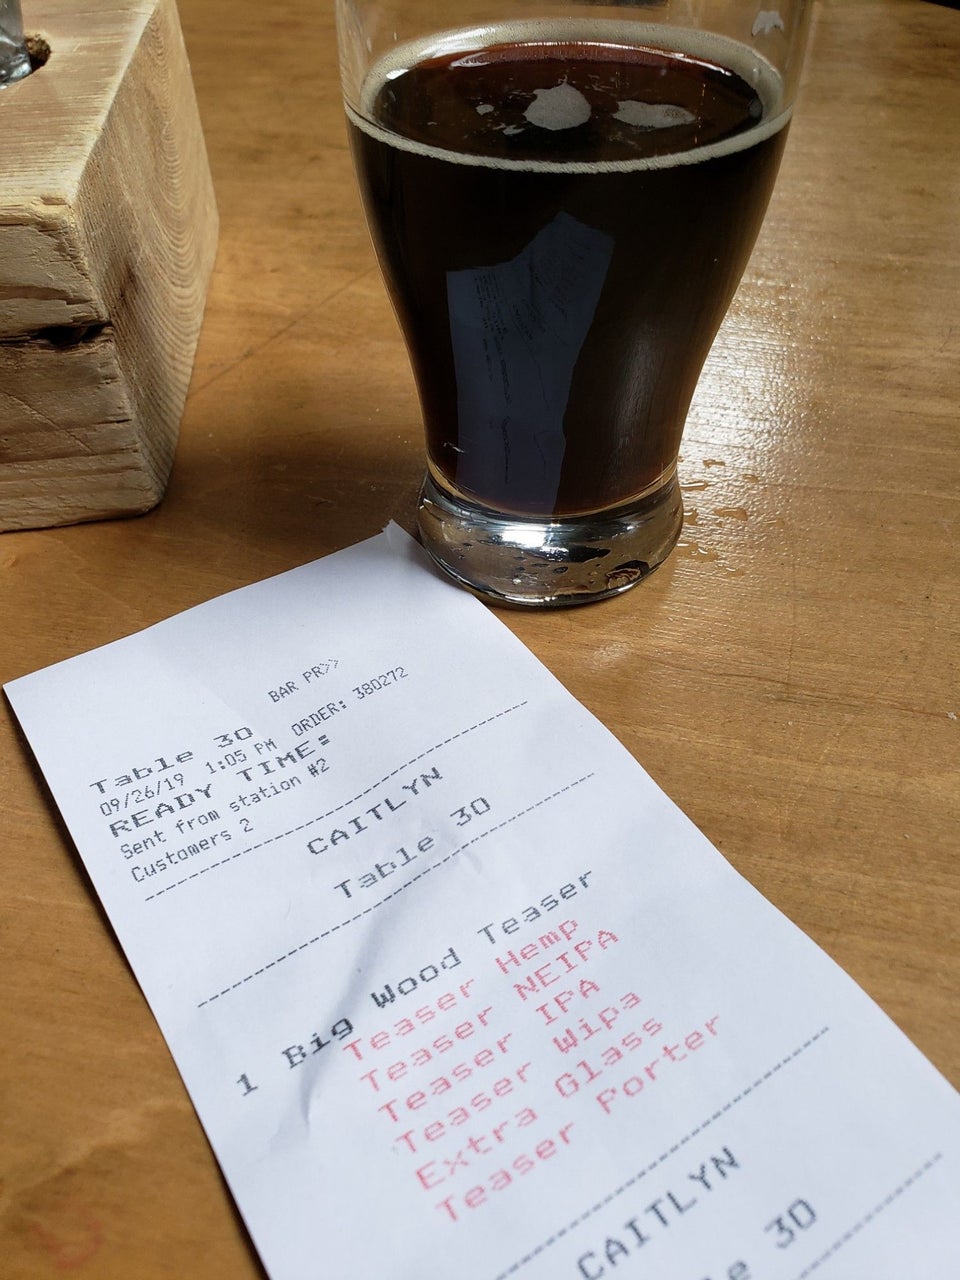 BAR PR>>
Table 30
09/26/19 1:05 PM ORDER: 380272
READY TIME:
Sent from station #2
Customers 2
CAITLYN
Table 30
1 Big Wood Teaser
Teaser Hemp
Teaser NEIPA
Teaser IPA
Teaser Wipa
Extra Glass
Teaser Porter
CAITLYN
30